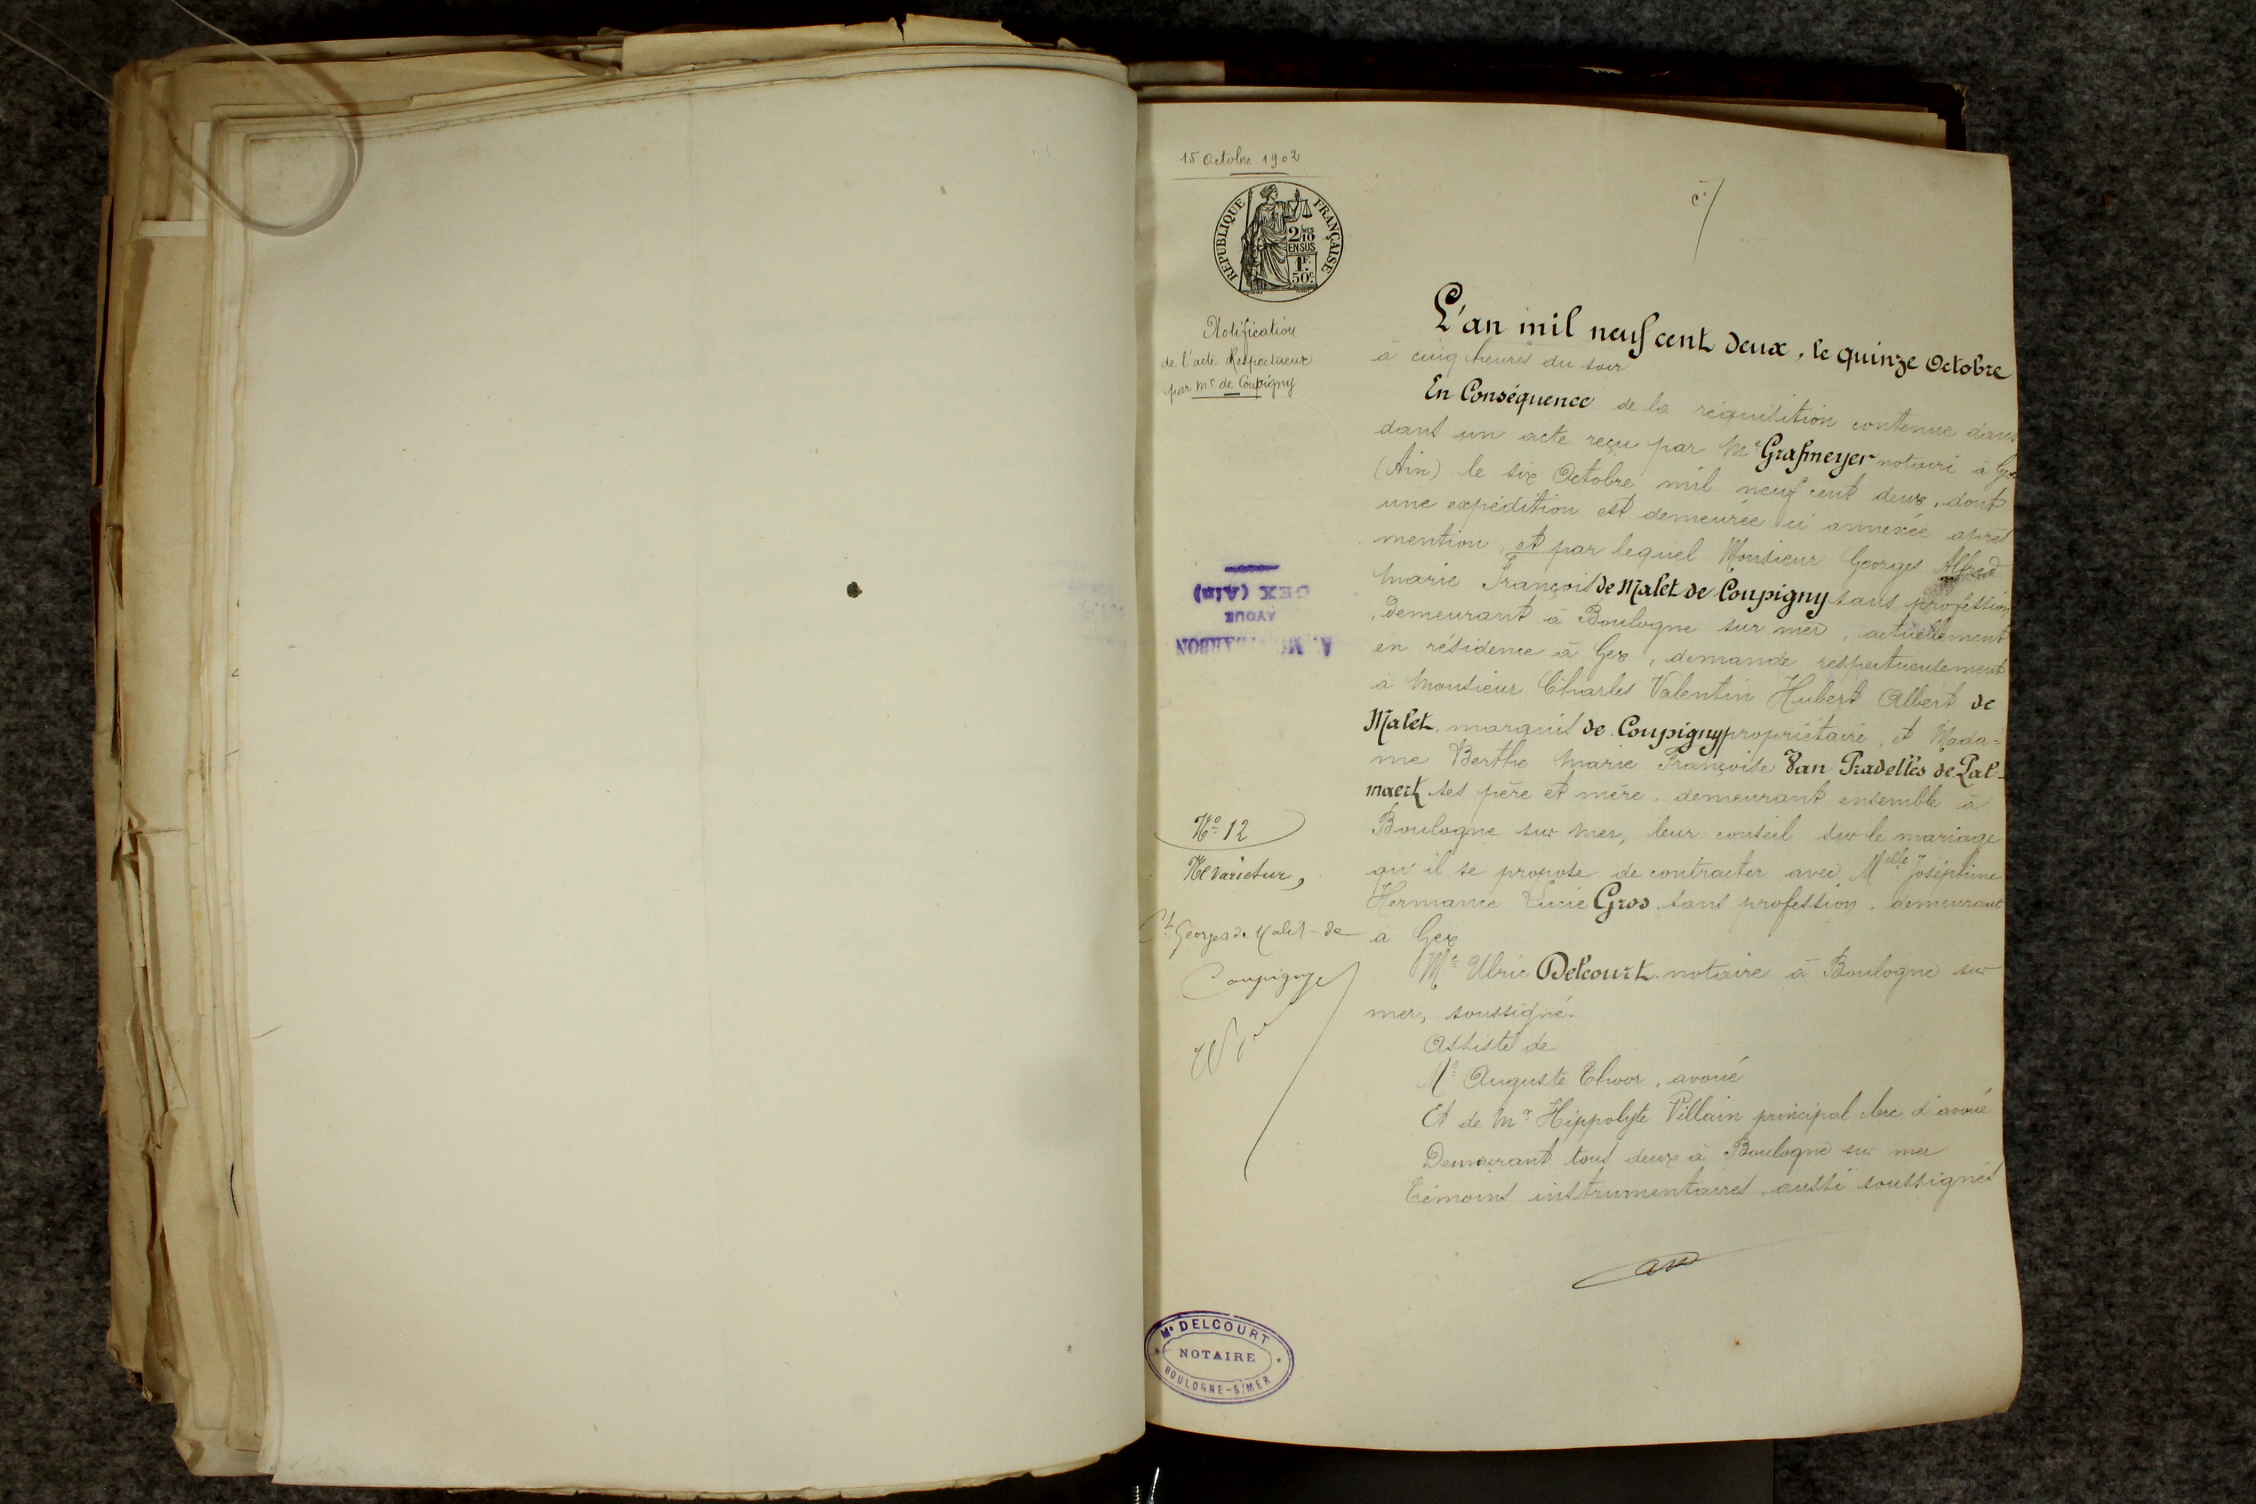 15 Octobre 1902
RÉPUBLIQUE FRANÇAISE
2/10 MES
EN SUS
1F.
50c.
Notification
de l'acte Respectueux
par Mr de Coupigny
L'an mil neuf cent deux, le quinze Octobre
à cinq heures du soir
En Conséquence de la réquisition contenue dans
dans un acte reçu par Me Grafmeyer notaire à Gex
(Ain) le six Octobre mil neuf cent deux, dont
une expédition est demeurée ci annexée après
mention, et par lequel Monsieur Georges Alfred
Marie François de Malet de Coupigny sans profession
, demeurant à Boulogne sur mer, actuellement
en résidence à Gex, demande respectueusement
à Monsieur Charles Valentin Hubert Albert de
Malet, marquis de Coupigny propriétaire, et Mada=
me Berthe Marie Françoise Van Pradelles de Pal-
maert ses père et mère, demeurant ensemble à
Boulogne sur Mer, leur conseil sur le mariage
qu'il se propose de contracter avec Melle Joséphine
Hermance Lucie Gros, sans profession, demeurant
à Gex
Me Ulric Delcourt, notaire à Boulogne sur
mer, soussigné.
Assisté de
Me Auguste Thoor, avoué
Et de Mr Hippolyte Pillain principal clerc d'avoué
Demeurant tous deux à Boulogne sur mer
Témoins instrumentaires, aussi soussignés
GEX (Ain)
AVOUÉ
No 12
Ne varietur,
Ct Georges de Malet de
Coupigny
Me DELCOURT
NOTAIRE
BOULOGNE-S/MER